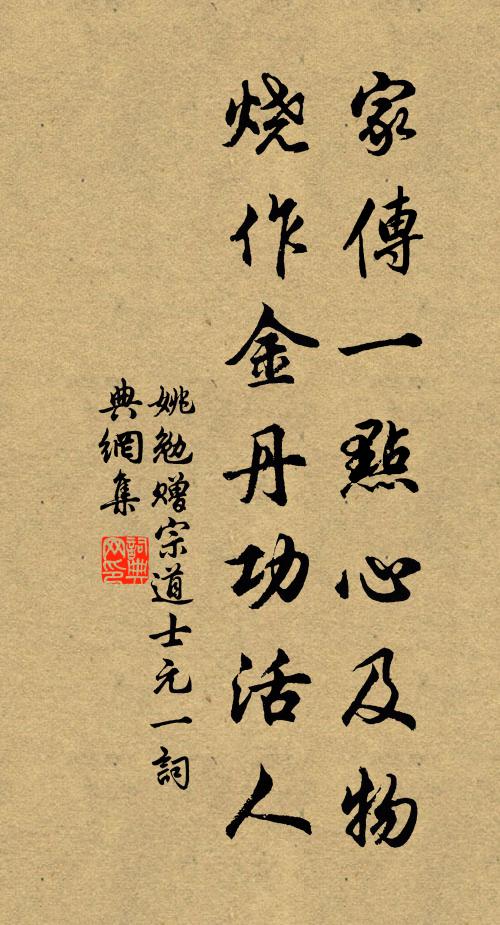 家傳一點心及物
烧作金丹功活人
姚勉赠宗道士元一詞
典網集
詞典
网印